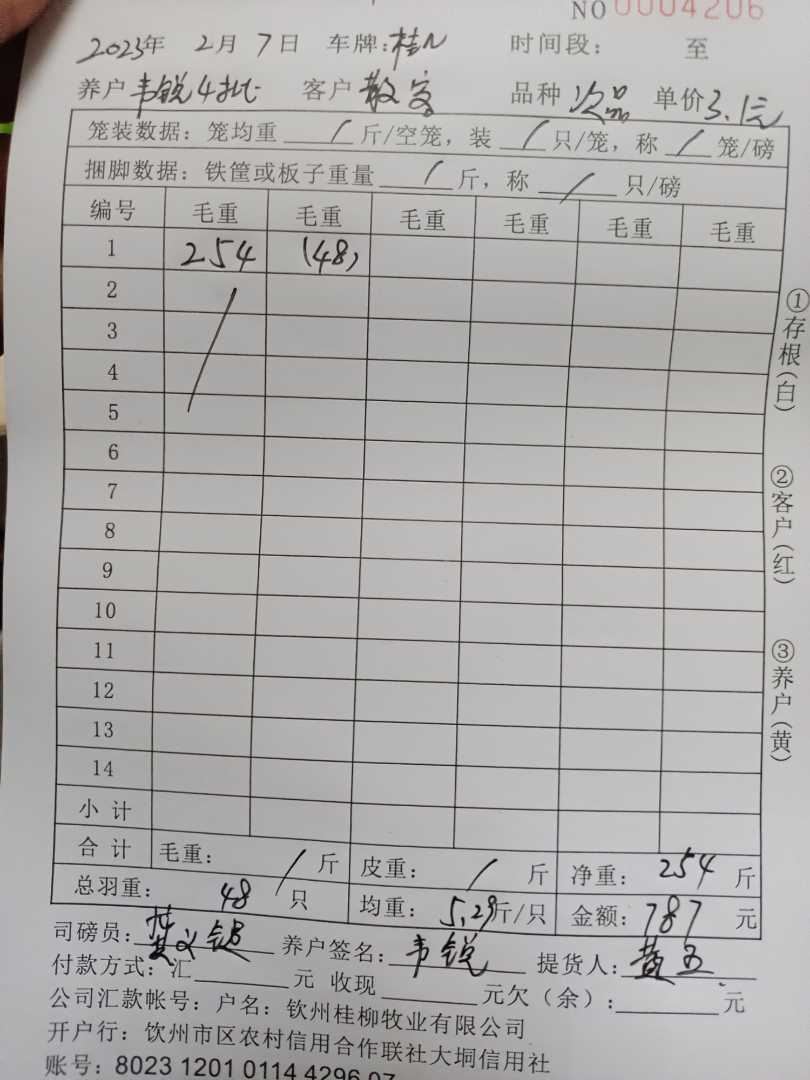 NO 0004206
2023年 2月 7日 车牌:桂N 时间段: 至
养户 韦锐4批 客户 散客 品种 次品 单价3.1元
笼装数据:笼均重 / 斤/空笼,装 / 只/笼,称 / 笼/磅
捆脚数据:铁筐或板子重量 / 斤,称 / 只/磅
编号 毛重 毛重 毛重 毛重 毛重 毛重
1 254 (48)
2
3
4
5
6
7
8
9
10
11
12
13
14
小计
合计 毛重: / 斤 皮重: / 斤 净重: 254 斤
总羽重: 48 只 均重: 5.29斤/只 金额: 787 元
司磅员: 养户签名: 韦锐 提货人: 黄五
付款方式:汇 元 收现 元欠(余): 元
公司汇款帐号:户名:钦州桂柳牧业有限公司
开户行:钦州市区农村信用合作联社大垌信用社
账号:8023 1201 0114 4296 07
①存根(白)
②客户(红)
③养户(黄)